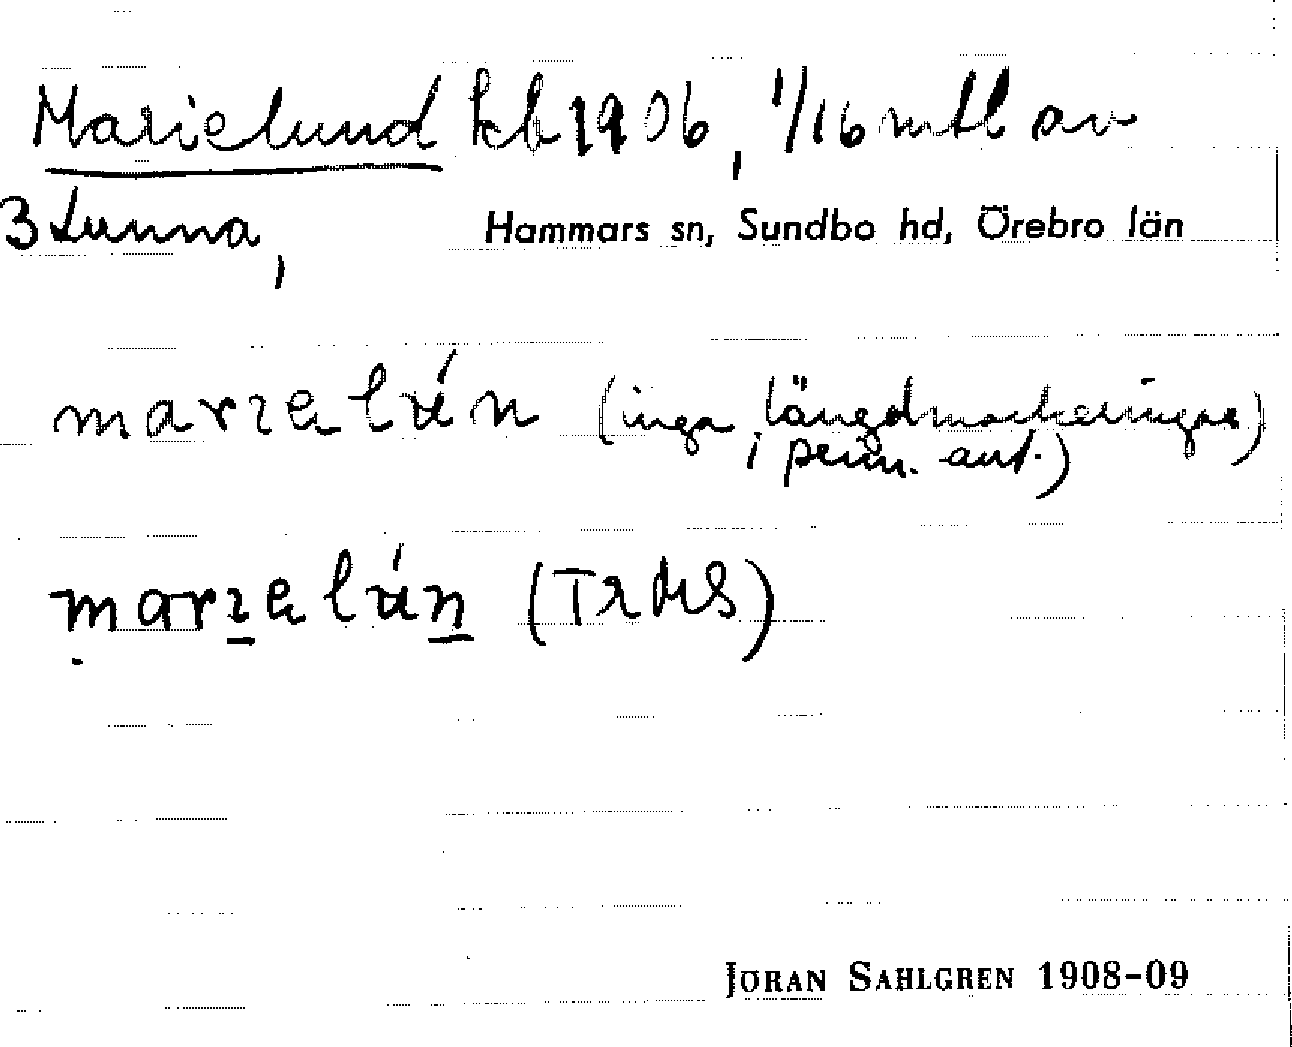 Marielund kb 1906, 1/16 mtl av
3 Lunna,
Hammars sn, Sundbo hd, Örebro län
marɪelún (inga längdmarkeringar)
i prim. ant.)
marɪelún (TRMS)
JÖRAN SAHLGREN 1908-09